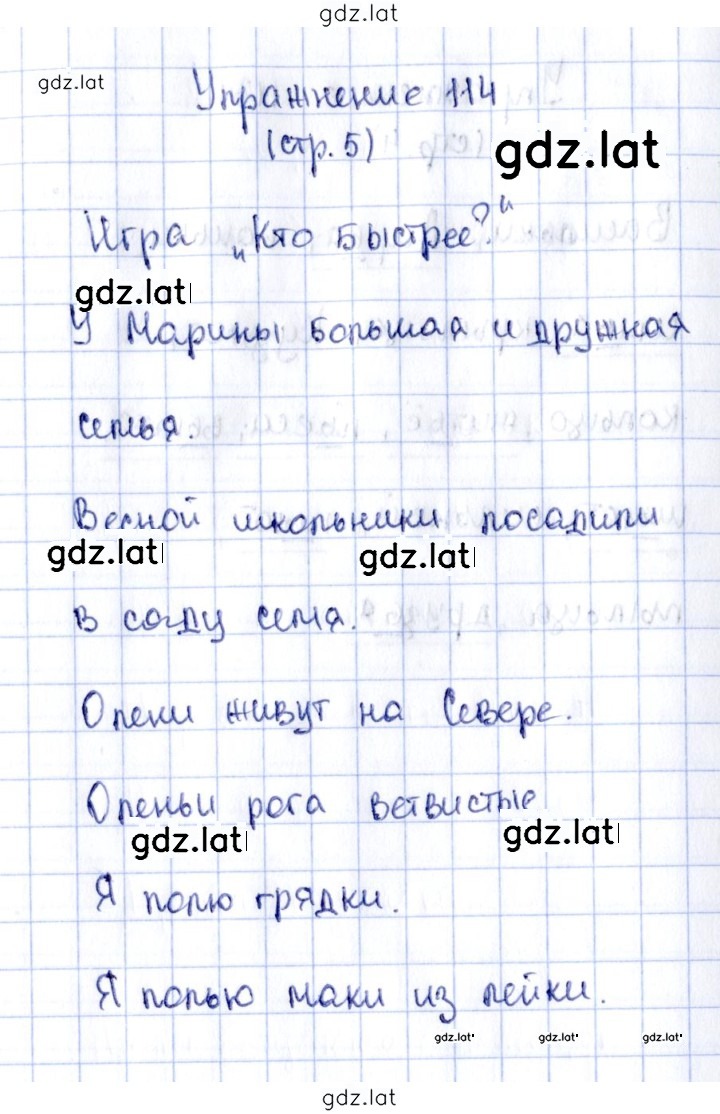 gdz.lat
gdz.lat
Упражнение 114
(стр. 5)
gdz.lat
Игра „Кто быстрее?“
gdz.lat
У Марины большая и дружная
семья.
Весной школьники посадили
gdz.lat gdz.lat
в саду семя.
Олени живут на Севере.
Оленьи рога ветвистые
gdz.lat gdz.lat
Я полю грядки.
Я полью маки из лейки.
gdz.lat gdz.lat gdz.lat
gdz.lat